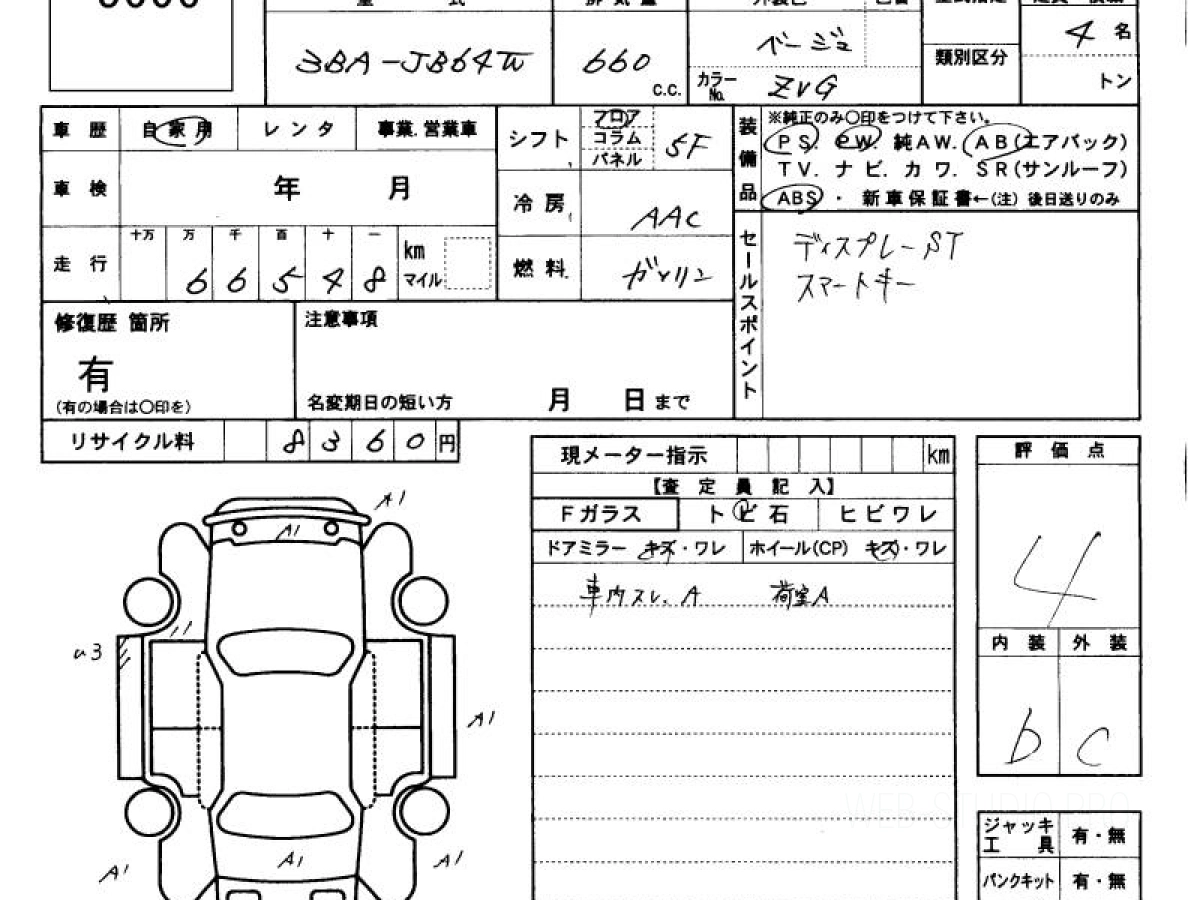 3BA-JB64W
660
c.c.
ベージュ
カラーNo. ZVG
類別区分
4 名
トン
車歴 自家用 レンタ 事業.営業車
シフト フロア コラム パネル 5F
車検 年 月
冷房 AAC
走行 十万 万 千 百 十 一
6 6 5 4 8
km
マイル
燃料 ガソリン
装備品
※純正のみ〇印をつけて下さい。
PS. PW. 純AW. AB(エアバック)
TV. ナビ. カワ. SR(サンルーフ)
ABS ・ 新車保証書←(注) 後日送りのみ
セールスポイント
ディスプレーST
スマートキー
修復歴 箇所
有
(有の場合は〇印を)
注意事項
名変期日の短い方 月 日 まで
リサイクル料 8 3 6 0 円
現メーター指示 km
【査定員記入】
Fガラス トビ石 ヒビワレ
ドアミラー キズ・ワレ ホイール(CP) キズ・ワレ
車内スレ. A 荷室A
評価点
4
内装 外装
b C
ジャッキ工具 有・無
パンクキット 有・無
A1
A1
u3
A1
A1
A1
A1
WEB STUDIO PRO